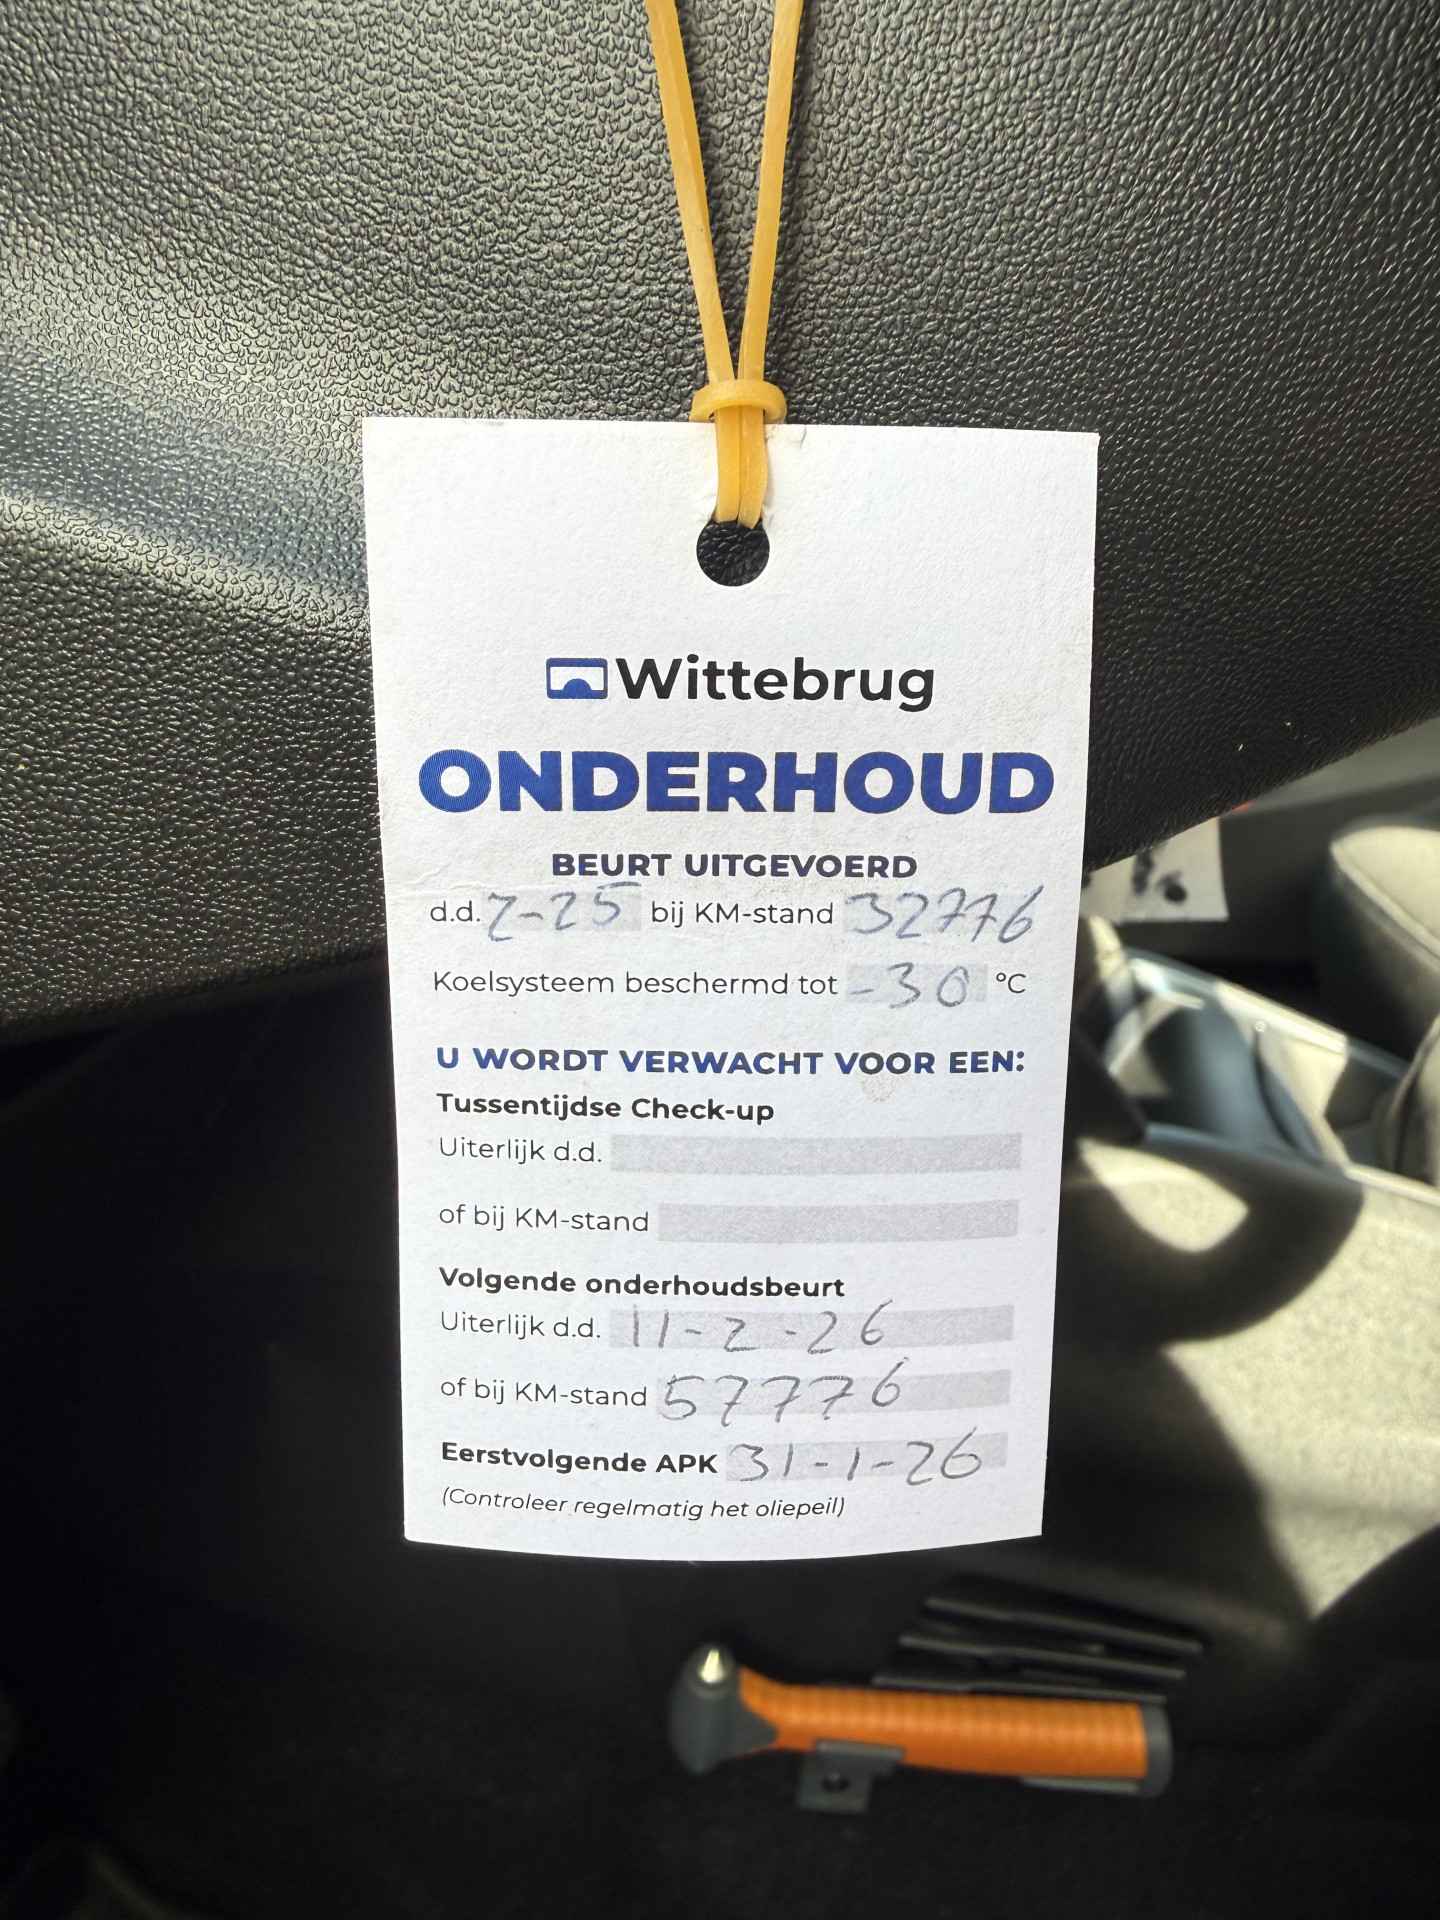 Wittebrug
ONDERHOUD
BEURT UITGEVOERD
d.d. 2-25 bij KM-stand 32776
Koelsysteem beschermd tot -30 °C
U WORDT VERWACHT VOOR EEN:
Tussentijdse Check-up
Uiterlijk d.d.
of bij KM-stand
Volgende onderhoudsbeurt
Uiterlijk d.d. 11-2-26
of bij KM-stand 57776
Eerstvolgende APK 31-1-26
(Controleer regelmatig het oliepeil)